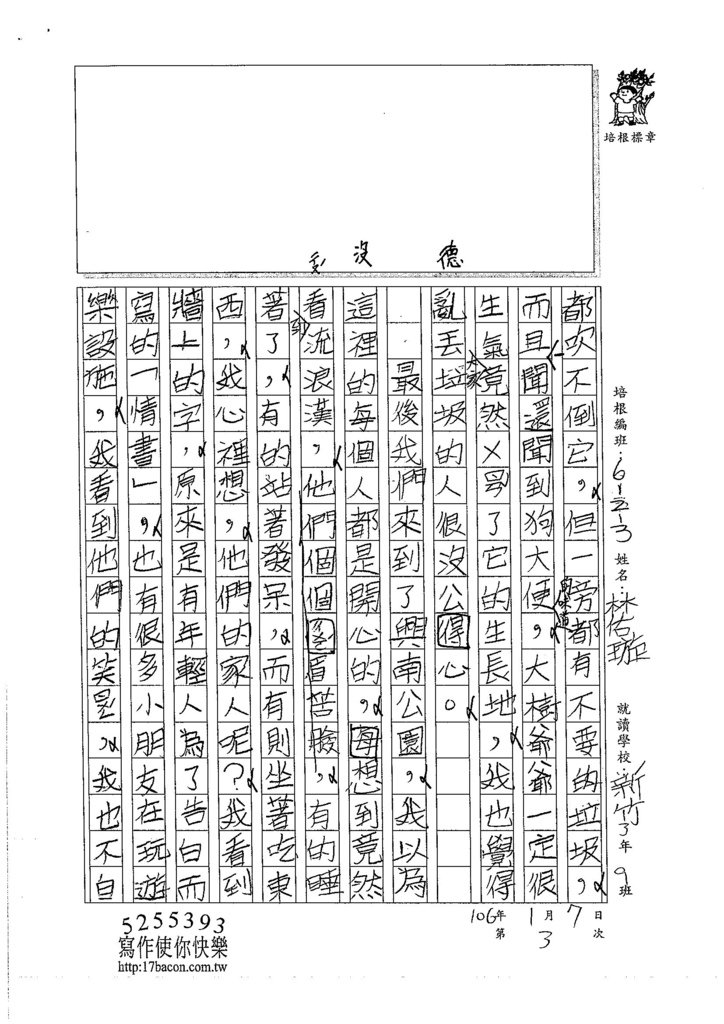 培根標章
德
沒
培根編班:
姓名:林佑璇
就讀學校:新竹3年9班
106年1月7日
第3次
都吹不倒它,但一旁都有不要的垃圾,
而且聞還聞到狗大便的味道,大樹爺爺一定很
生氣大家竟然ㄨ了它的生長地,我也覺得
亂丟垃圾的人很沒公得心。
最後我們來到了興南公園,我以為
這裡的每個人都是開心的,每想到竟然
看到流浪漢,他們個個眉苦臉,有的睡
著了,有的站著發呆,而有則坐著吃東
西,我心裡想,他們的家人呢?我看到
牆上的字,原來是有年輕人為了告白而
寫的「情書」,也有很多小朋友在玩遊
樂設施,我看到他們的笑,我也不自
5255393
寫作使你快樂
http:17bacon.com.tw